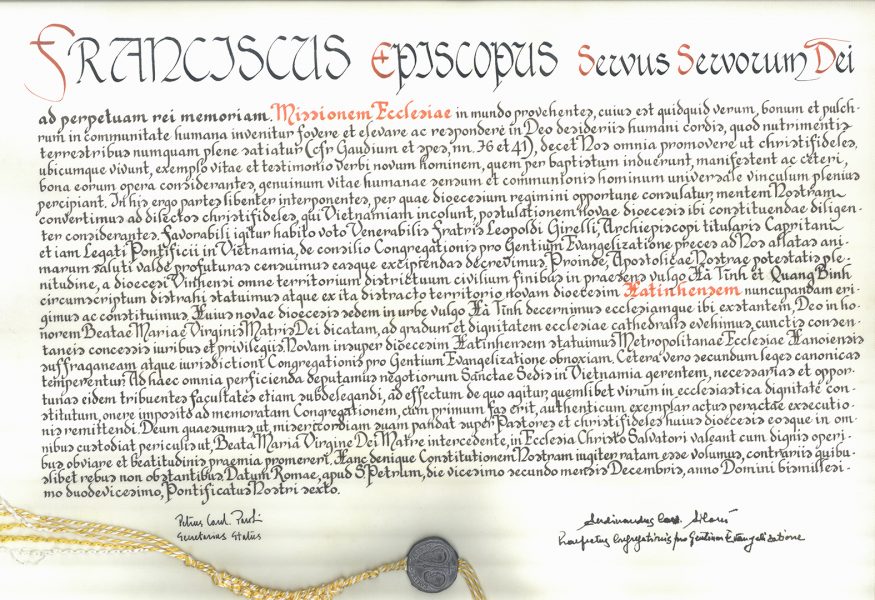 FRANCISCUS EPISCOPUS SERVUS SERVORUM DEI
ad perpetuam rei memoriam. Missionem Ecclesiae in mundo provehentes, cuius est quidquid verum, bonum et pulch-
rum in communitate humana invenitur fovere et elevare ac respondere in Deo desideriis humani cordis, quod nutrimentis
terrestribus numquam plene satiatur (cfr Gaudium et spes, nn. 36 et 41), decet Nos omnia promovere ut christifideles,
ubicumque vivunt, exemplo vitae et testimonio verbi novum hominem, quem per baptistum induerunt, manifestent ac ceteri,
bona eorum opera considerantes, genuinum vitae humanae sensum et communionis hominum universale vinculum plenius
percipiant. In his ergo partes libenter interponentes, per quae dioecesium regimini opportune consulatur, mentem Nostram
convertimus ad dilectos christifideles, qui Vietnamiam incolunt, postulationem novae dioecesis ibi constituendae diligen-
ter considerantes. Favorabili igitur habito voto Venerabilis Fratris Leopoldi Girelli, Archiepiscopi titularis Capritani
et iam Legati Pontificii in Vietnamia, de consilio Congregationis pro Gentium Evangelizatione preces ad Nos allatas ani-
marum saluti valde profuturas censuimus easque excipiendas decrevimus. Proinde, Apostolicae Nostrae potestatis ple-
nitudine, a dioecesi Vinhensi omne territorium districtuum civilium finibus in praesens vulgo Hà Tĩnh et Quang Binh
circumscriptum distrahi statuimus atque ex ita distracto territorio novam dioecesim Hatinhensem nuncupandam eri-
gimus ac constituimus. Huius novae dioecesis sedem in urbe vulgo Hà Tinh decernimus ecclesiamque ibi exstantem, Deo in ho-
norem Beatae Mariae Virginis Matris Dei dicatam, ad gradum et dignitatem ecclesiae cathedralis evehimus, cunctis consen-
taneis concessis iuribus et privilegiis. Novam insuper dioecesim Hatinhensem statuimus Metropolitanae Ecclesiae Hanoiensis
suffraganeam atque iurisdictioni Congregationis pro Gentium Evangelizatione obnoxiam. Cetera vero secundum leges canonicas
temperentur. Ad haec omnia perficienda deputamus negotiorum Sanctae Sedis in Vietnamia gerentem, necessarias et oppor-
tunas eidem tribuentes facultates etiam subdelegandi, ad effectum de quo agitur, quemlibet virum in ecclesiastica dignitate con-
stitutum, onere imposito ad memoratam Congregationem, cum primum fas erit, authenticum exemplar actus peractae exsecutio-
nis remittendi. Deum quaesumus, ut misericordiam suam pandat super Pastores et christifideles huius dioecesis eosque in om-
nibus custodiat periculis ut, Beata Maria Virgine Dei Matre intercedente, in Ecclesia Christo Salvatori valeant cum dignis operi-
bus obviare et beatitudinis praemia promereri. Hanc denique Constitutionem Nostram iugiter ratam esse volumus, contrariis quibu-
slibet rebus non obstantibus. Datum Romae, apud S. Petrum, die vicesimo secundo mensis Decembris, anno Domini bismillesi-
mo duodevicesimo, Pontificatus Nostri sexto.
Petrus Card. Parolin
Secretarius Status
Ferdinandus Card. Filoni
Praefectus Congregationis pro Gentium Evangelizatione